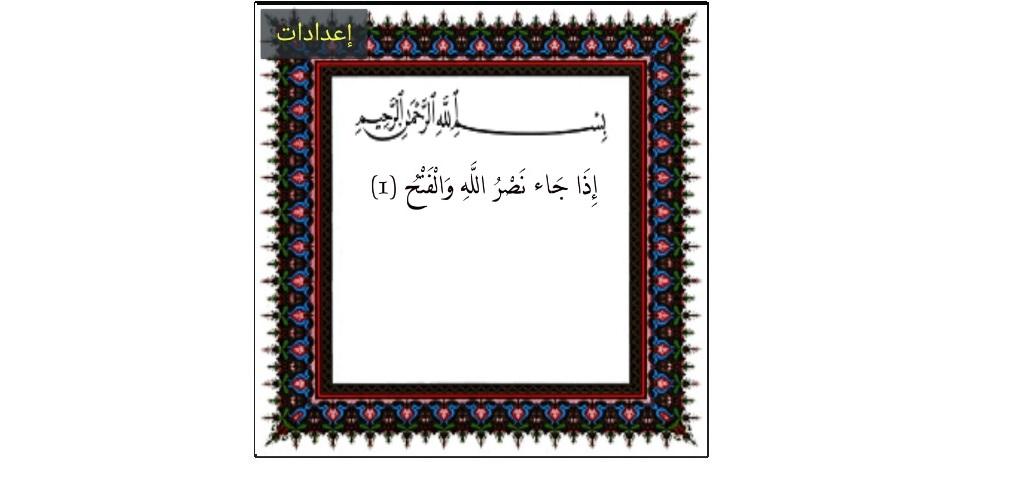 إعدادات
بسم ٱللَّهِ ٱلرَّحْمَٰنِ ٱلرَّحِيمِ
إِذَا جَاء نَصْرُ اللَّهِ وَالْفَتْحُ (1)